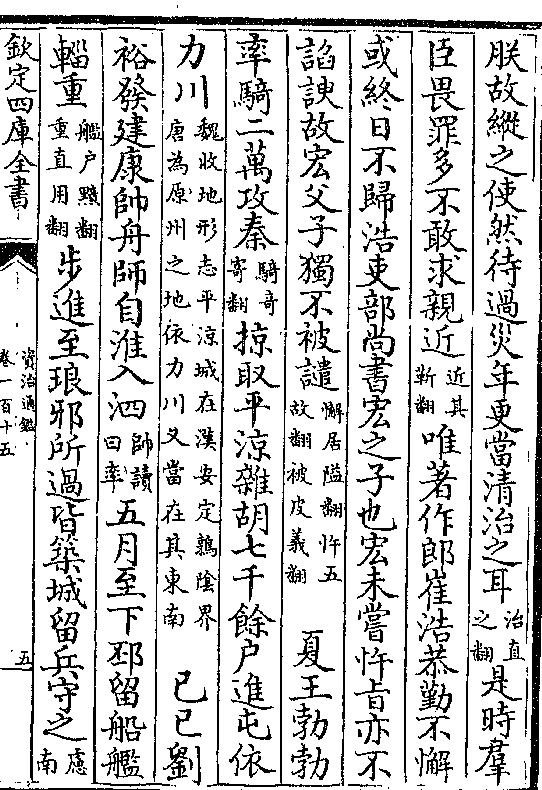 朕故縱之使然待過災年更當清治之耳治直之翻是時羣
臣畏罪多不敢求親近近其靳翻唯著作郎崔浩恭勤不懈
或終日不歸浩吏部尚書宏之子也宏未嘗忤旨亦不
諂諛故宏父子獨不被譴懈居隘翻忤五故翻被皮義翻夏王勃勃
率騎二萬攻秦騎竒寄翻掠取平涼雜胡七千餘户進屯依
力川魏收地形志平涼城在漢安定鶉陰界唐為原州之地依力川又當在其東南己巳劉
裕發建康帥舟師自淮入泗帥讀曰率五月至下邳留船艦
輜重艦户黤翻重直用翻步進至琅邪所過皆築城留兵守之慮南
欽定四庫全書
資治通鑑
卷一百十五
五